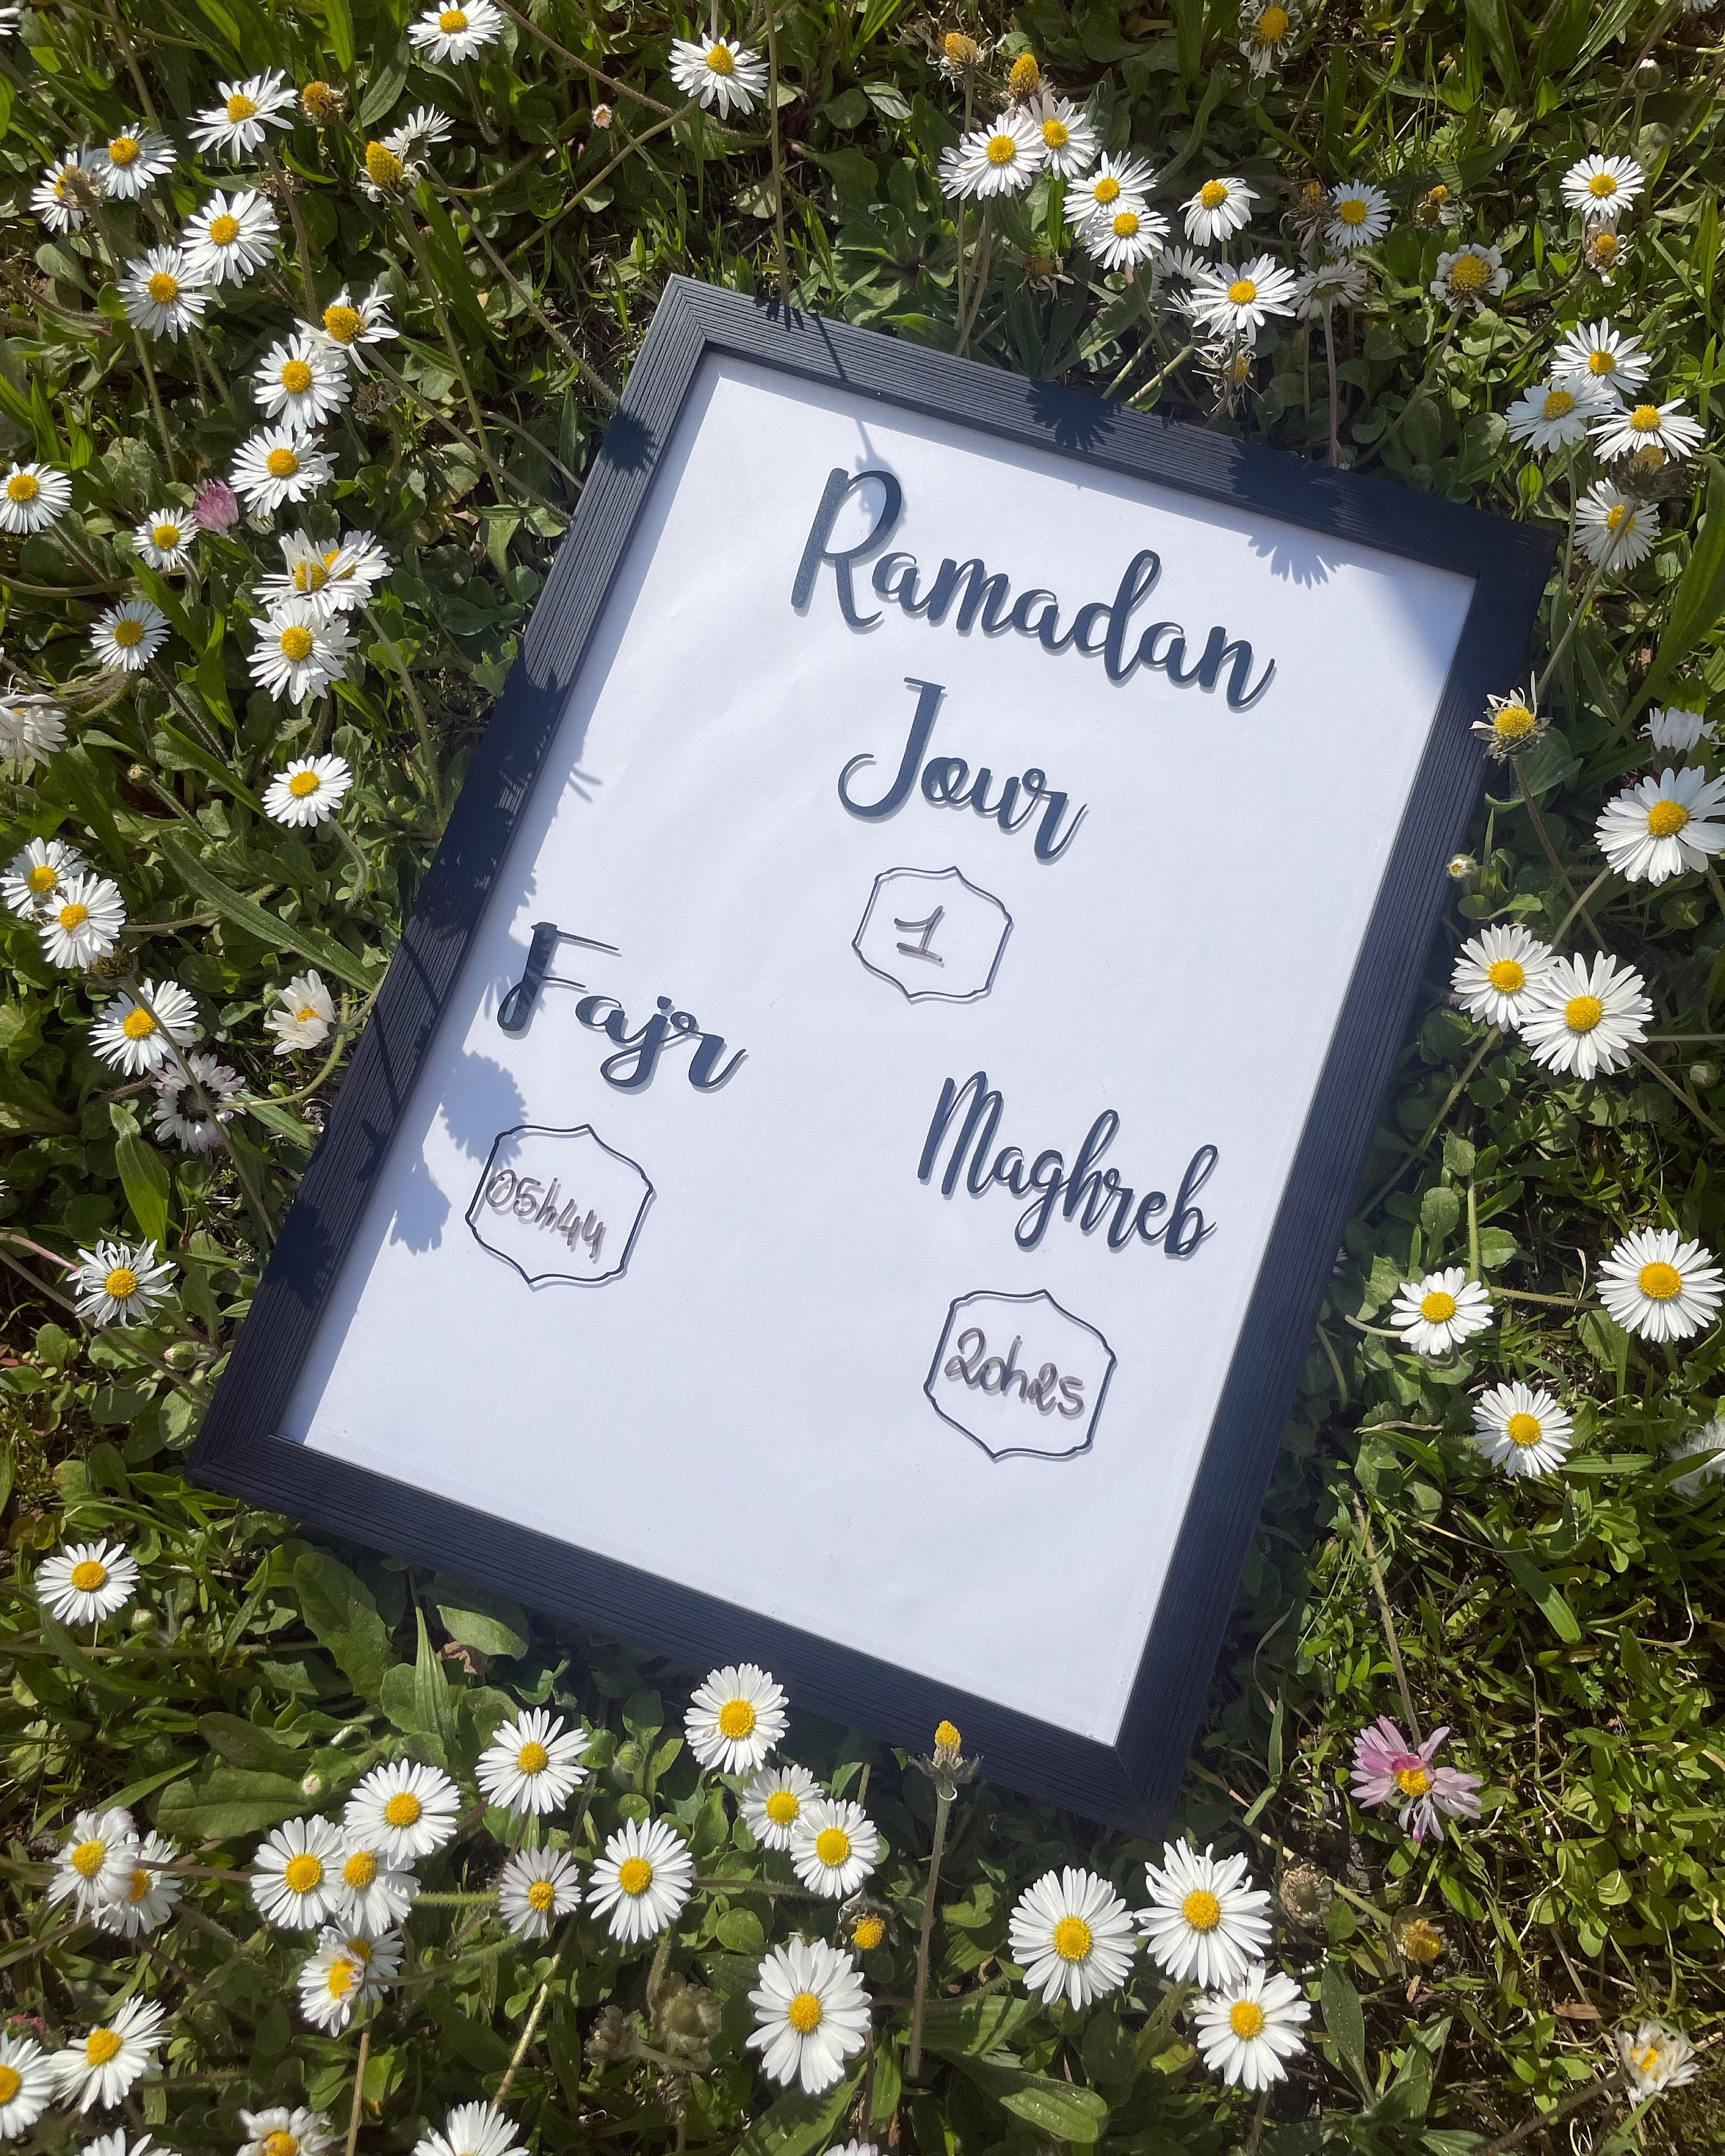 Ramadan
Jour
1
Fajr
05h44
Maghreb
20h25